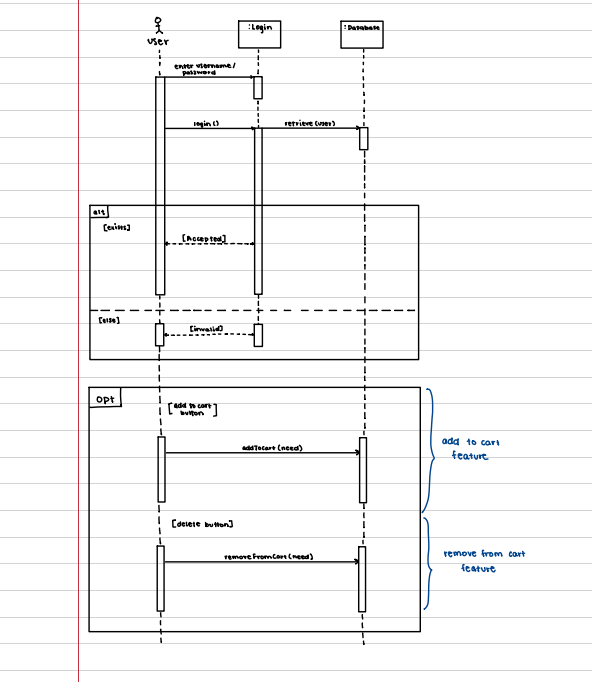 user
:Login
:Database
enter username/
password
login ()
retrieve (user)
alt
[exists]
[Accepted]
[else]
[invalid]
opt
[add to cart
button]
addToCart (need)
add to cart
feature
[delete button]
removeFromCart (need)
remove from cart
feature